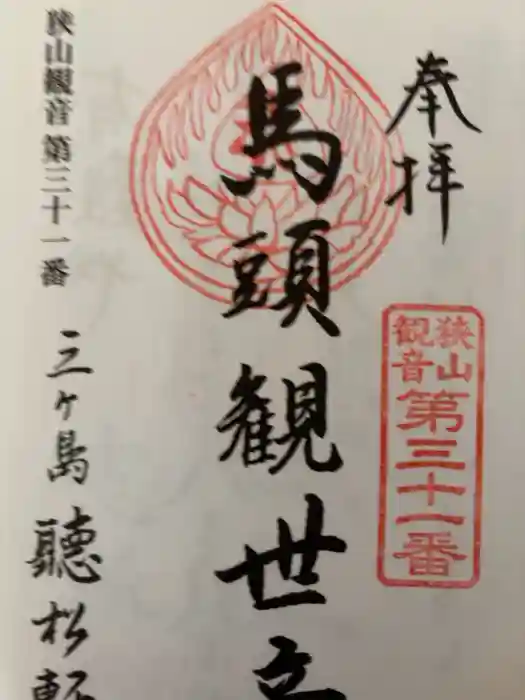 奉拝
狭山
観音
第三十一番
馬頭観世音
狭山観音第三十一番
三ヶ島
聴松軒